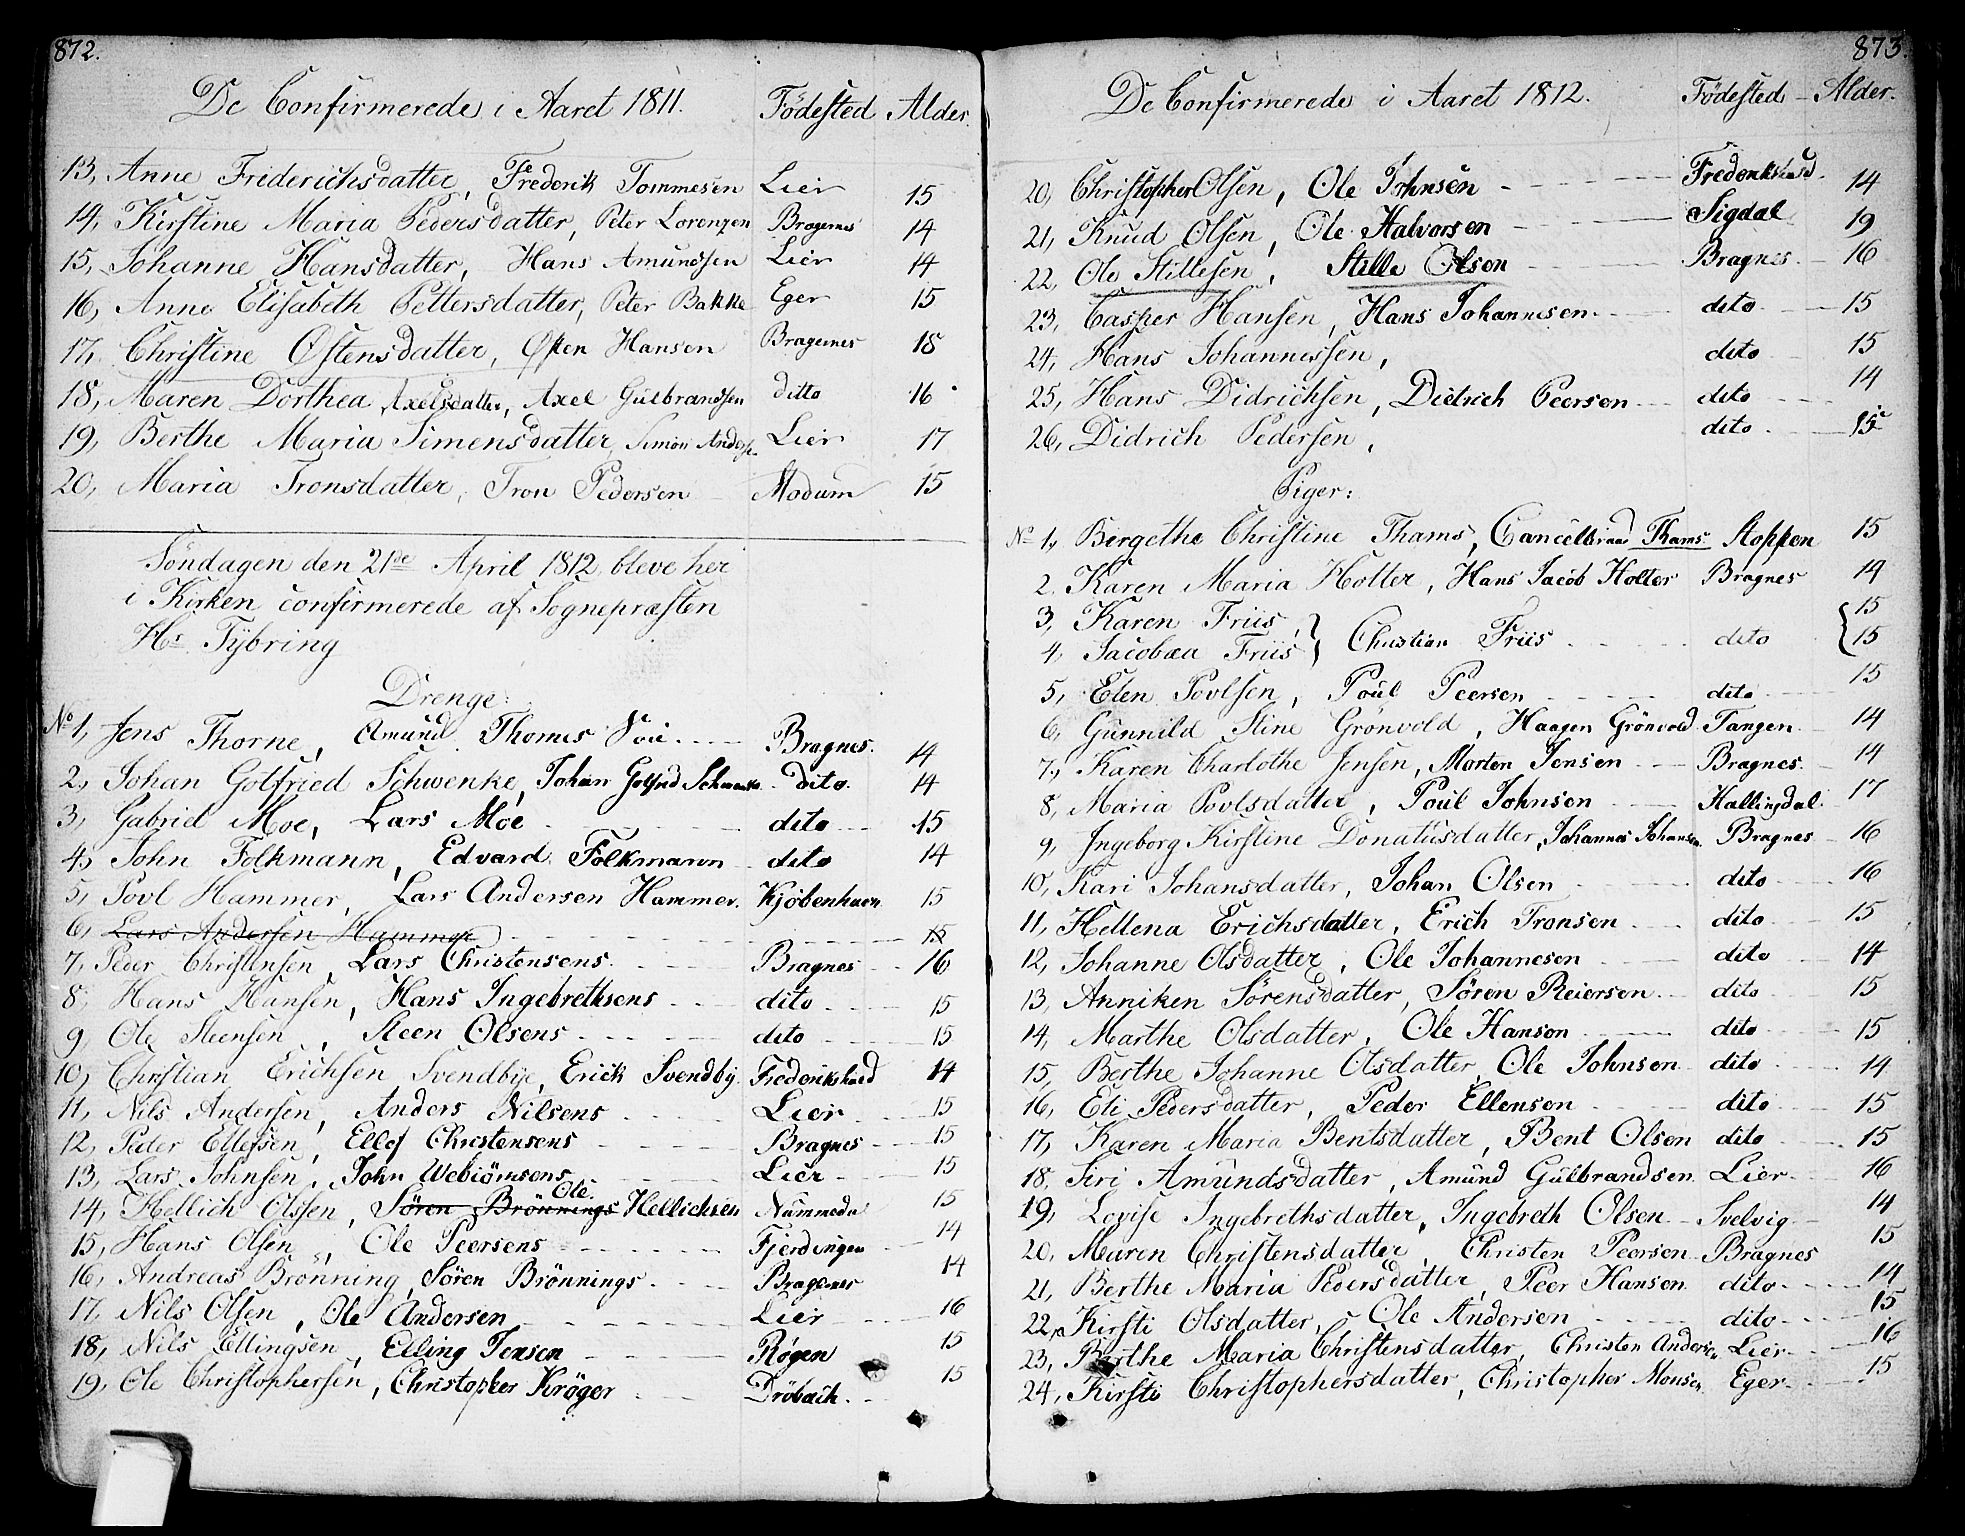 872.
De Confirmerede i Aaret 1811. Födested Alder.
13, Anne Friderichsdatter, Frederik Tommesen Lier 15
14, Kirstine Maria Pedersdatter, Peter Lorenzen Bragernes 14
15, Johanne Hansdatter, Hans Amundsen Lier 14
16, Anne Elisabeth Pettersdatter, Peter Bakke Eger 15
17, Christine Østensdatter, Østen Hansen Bragernes 18
18, Maren Dorthea Axelsdatter, Axel Gulbrandsen ditto 16
19, Berthe Maria Simensdatter, Simon Anders. Lier 17
20, Maria Tronsdatter, Tron Pedersen Modum 15
Söndagen den 21de April 1812 bleve her
i Kirken confirmerede af Sognepræsten
Hr. Tÿbring
Drenge:
No 1, Jens Thorne, Amund Thomes Bragnes. 14
2, Johan Gotfried Schwenke, Johan Gotfrid Schwenke dito. 14
3, Gabriel Moe, Lars Moe dito 15
4, John Folkmann, Edvard Folkmann dito 14
5, Povl Hammer, Lars Andersen Hammer. Kjöbenhavn 15
6, Lars Andersen Hammer 15
7, Peder Christensen, Lars Christensens Bragnes 16
8, Hans Hansen, Hans Ingebrethsens dito 15
9, Ole Steensen, Steen Olsens dito 15
10, Christian Erichsen Svendbye, Erick Svendbÿ. Frederikshald 14
11, Nils Andersen, Anders Nilsens Lier 15
12, Peder Ellefsen, Ellef Christensens Bragnes 15
13, Lars Johnsen, John Webiörnsens Lier 15
Ole
14, Hellich Olsen, Sören Brönnings Hellichsen Nummedal 15
15, Hans Olsen, Ole Peersens Fjerdingen 14
16, Andreas Brönning, Sören Brönnings Bragernes 14
17, Nils Olsen, Ole Andersen Lier 16
18, Nils Ellingsen, Elling Jensen Rögen 15
19, Ole Christophersen, Christopher Kröger Dröbach. 15
873.
De Confirmerede i Aaret 1812. Födested Alder.
20, Christopher Olsen, Ole Johnsen Frederikshald. 14
21, Knud Olsen, Ole Halvorsen Sigdal 19
22, Ole Stillesen, Stille Olsen Bragnes. 16
23, Casper Hansen, Hans Johannesen dito 15
24, Hans Johannessen, dito 15
25, Hans Didrichsen, Didrich Peersen dito 14
26, Didrich Pedersen, dito 15
Piger:
No 1, Birgethe Christine Thams, Cancelliraad Thams Stoppen 15
2, Karen Maria Holter, Hans Jacob Holter Bragnes 19
3, Karen Friis, 15
4, Jacobæa Friis } Christian Friis dito 15
5, Elen Povlsen, Poul Peersen dito 15
6, Gunnild Stine Grönvold, Haagen Grönvold Tangen 14
7, Karen Charlothe Jensen, Morten Jensen Bragnes. 14
8, Maria Povlsdatter, Poul Johnsen Hallingdal 17
9, Ingeborg Kirstine Donatusdatter, Johannes Johansen Bragnes 16
10, Kari Johansdatter, Johan Olsen dito 16
11, Hellena Erichsdatter, Erich Tronsen dito 15
12, Johanne Olsdatter, Ole Johannesen dito 14
13, Anniken Sörensdatter, Sören Reiersen dito 15
14, Marthe Olsdatter, Ole Hansen dito 15
15, Berthe Johanne Olsdatter, Ole Johnsen dito 14
16, Eli Pedersdatter, Peder Ellensen dito 15
17, Karen Maria Bentsdatter, Bent Olsen dito 15
18, Siri Amundsdatter, Amund Gulbrandsen Lier 16
19, Lovise Ingebrethsdatter, Ingebreth Olsen Svelvig 14
20, Maren Christensdatter, Christen Peersen Bragnes 15
21, Berthe Maria Pedersdatter, Peer Hansen dito 14
22, Kirsti Olsdatter, Ole Andersen dito 15
23, Berthe Maria Christensdatter, Christen Andersen Lier 16
24, Kirsti Christophersdatter, Christopher Monsen Eger 15